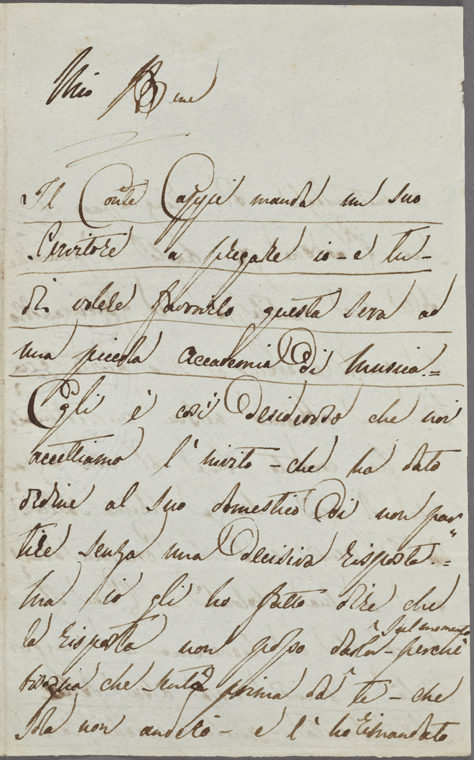 Mio Bene
Il Conte manda un suo
Servitore a pregare io - e tu -
di volere favorirlo questa sera ad
una piccola accademia di Musica. =
Egli è così desideroso che noi
accettiamo l'invito - che ha dato
ordine al suo domestico di non par"
tire senza una decisiva risposta. =
Ma io gli ho fatto dire che
la risposta non posso darla sul momento - perchè
bisogna che senta prima da te - che
sola non anderò - e l'ho rimandato